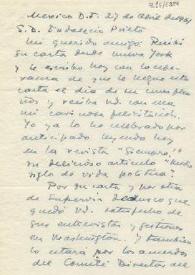 Mexico D.F. 27 de Abril de
S.D. Indalecio Prieto
Mi querido amigo: Recibí
su carta desde nueva York
y le escribo hoy con la espe-
ranza de que le llegue esta
carta el día de su cumplea-
ños y reciba vd. con ella
mi cariñosa felicitación.
Yo ya lo he celebrado por
anticipado leyendo
en la revista "Siempre"
su delicioso artículo
siglo de vida política".
Por su carta y por otra
de deduzco que
quedó vd. satisfecho de
sus entrevistas y gestiones
en Washington. Y también
lo estará por los acuerdos
del Comité Director del